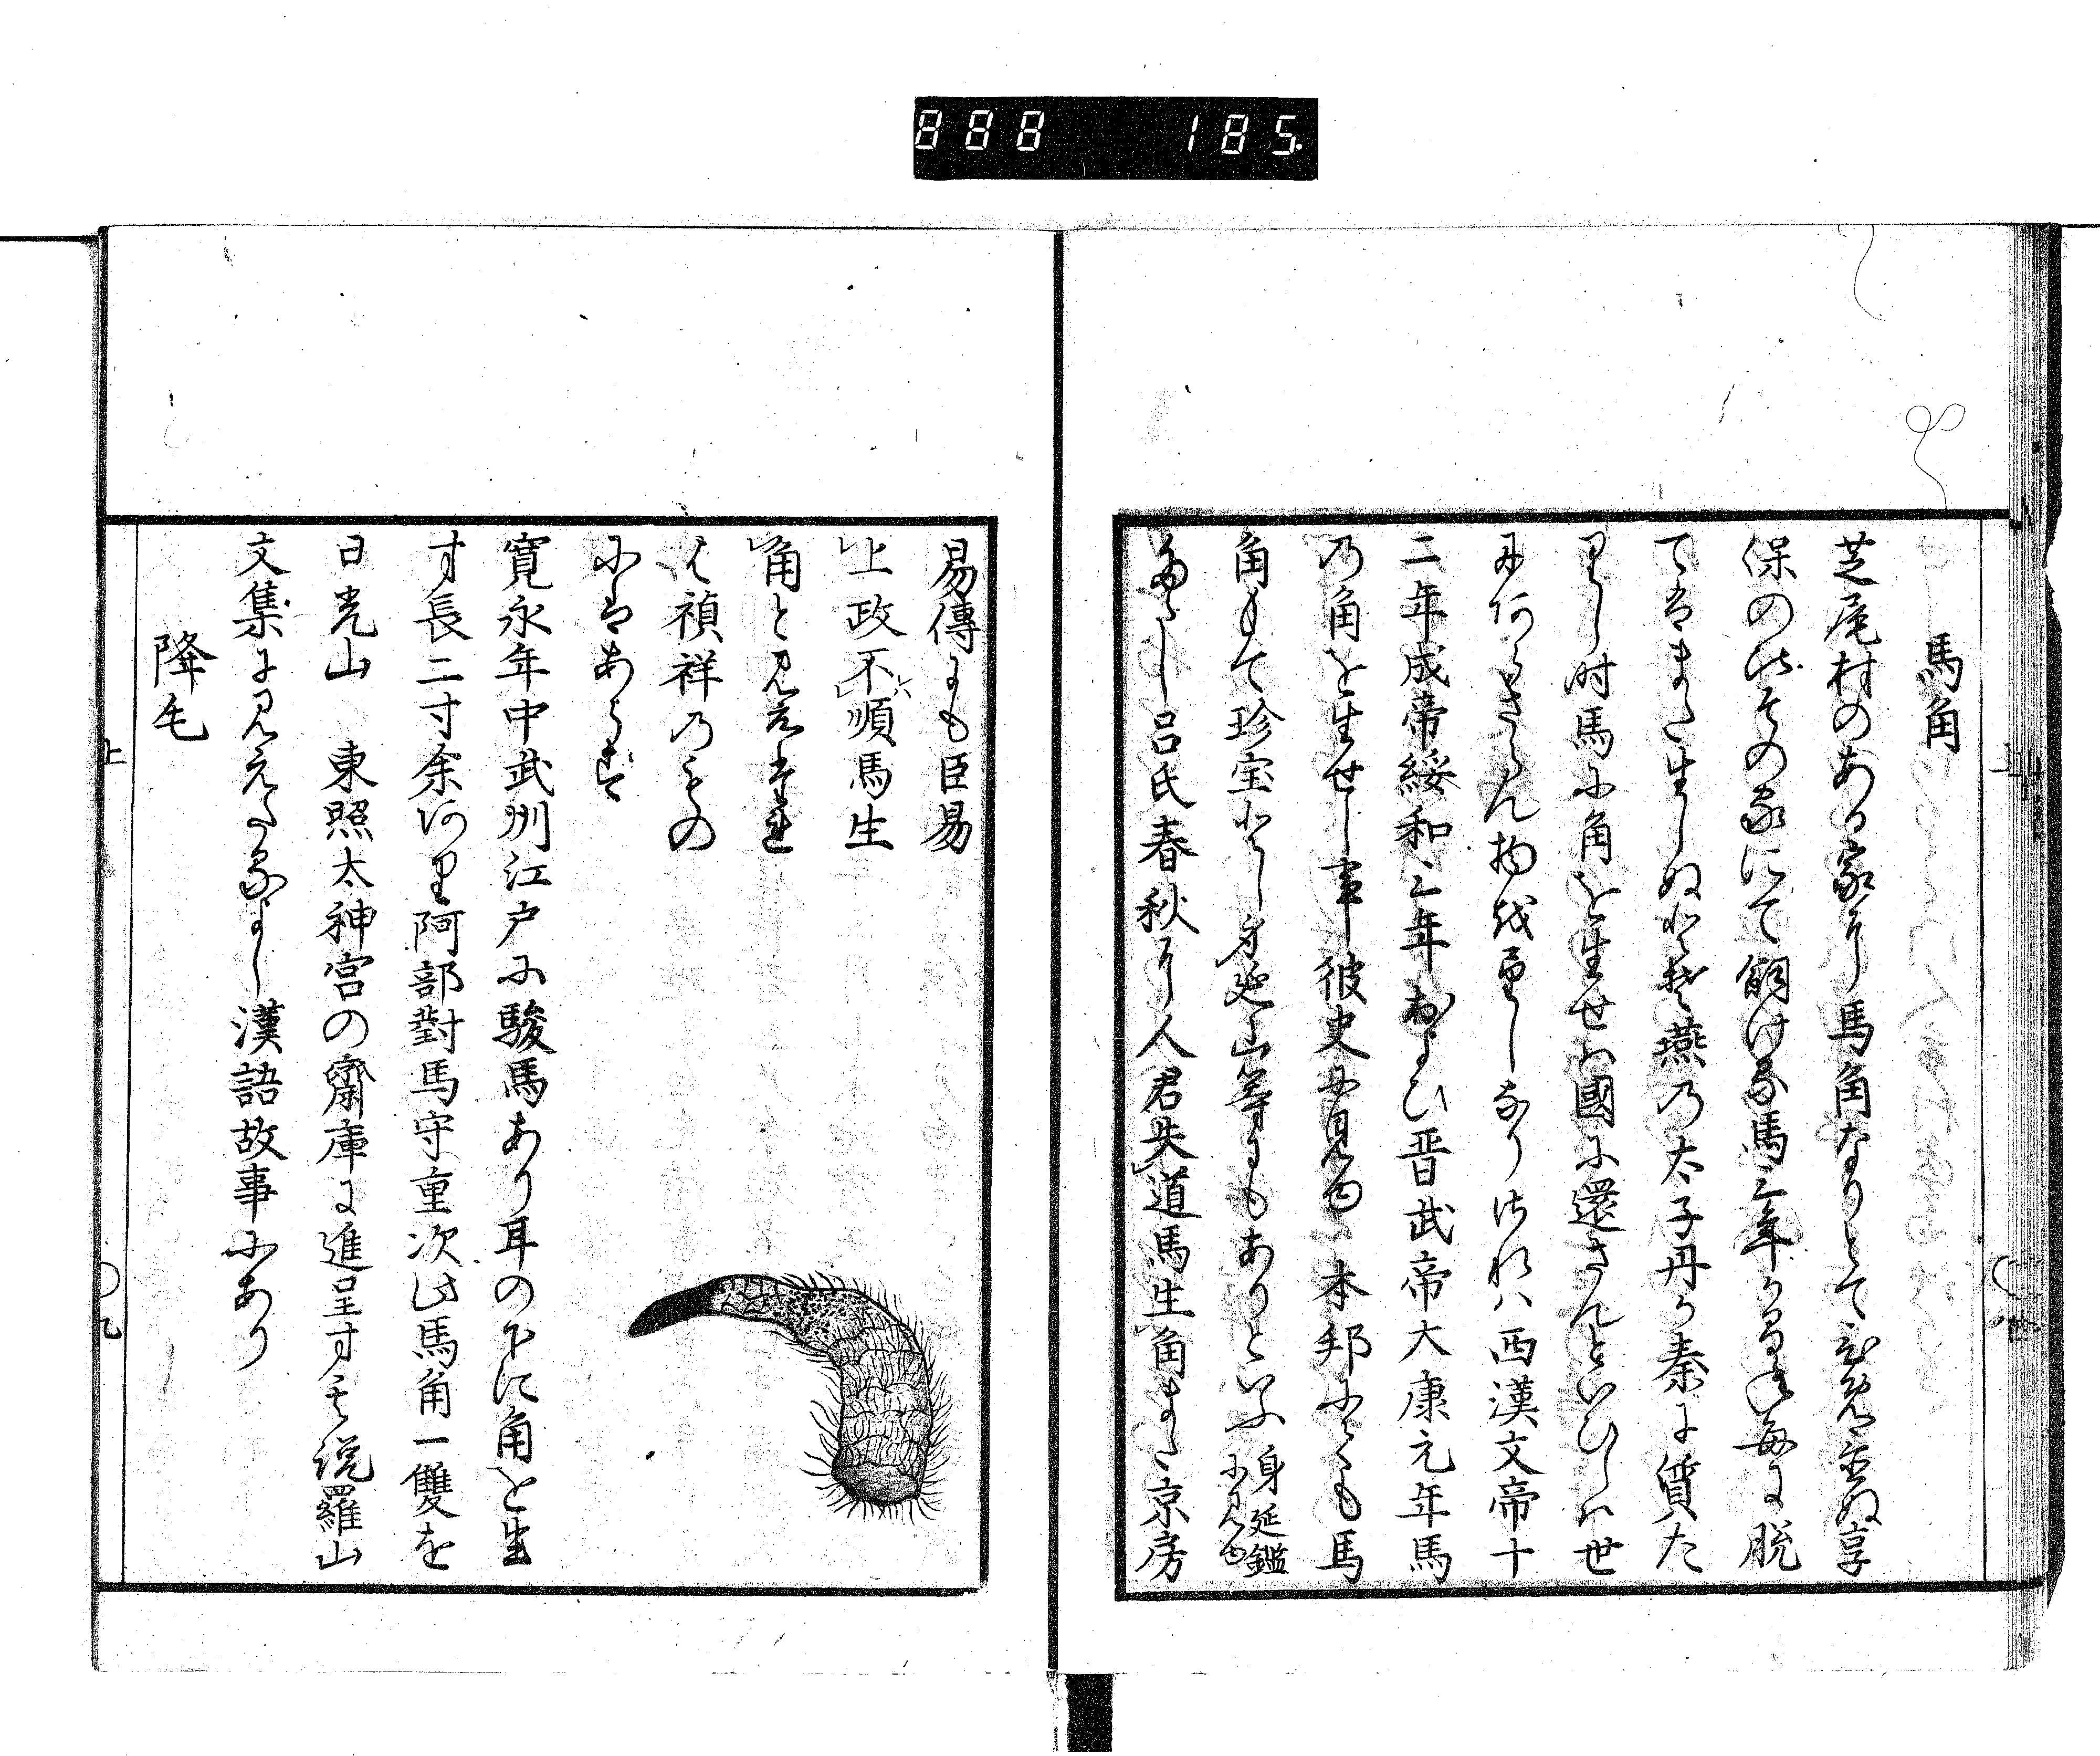 888 185
馬角
芝尾村のある家に馬角なりとて
保の比その家にて飼ける馬三年
てはまた生しぬとぞ燕の太子丹か秦に質た
りし時馬に角を生せは國に還さんといひしは世
西漢文帝十
二年成帝綏和二年および晋武帝大康元年馬
の角を生せし事彼史に見ゆ本邦にても馬
角もて珍宝としありといふ身延鑑に見ゆ
呂氏春秋に人君失道馬生角また京房
易傳にも臣易
上政不順馬生
角と見えたれ
は禎祥のもの
にはあらず
寛永年中武州江戸に駿馬あり耳の下に角を生
す長二寸余阿部對馬守重次此馬角一雙を
日光山東照太神宮の齋庫に進呈す其説羅山
文集に見えたるよし漢語故事にあり
降毛
上 〇九